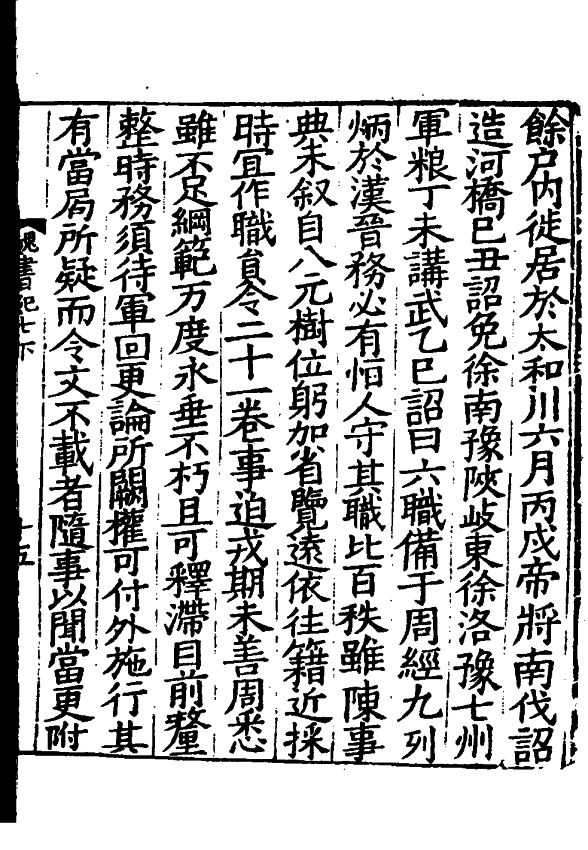 餘户内徙居於太和川六月丙戌帝將南伐詔
造河橋己丑詔免徐南豫陝岐東徐洛豫七州
軍粮丁未講武乙巳詔曰六職備于周經九列
炳於漢晉務必有恒人守其職比百秩雖陳事
典未叙自八元樹位躬加省覽遠依往籍近採
時宜作職貟令二十一卷事迫戎期未善周悉
雖不足綱範万度永垂不朽且可釋滯目前釐
整時務須待軍回更論所闕權可付外施行其
有當局所疑而令文不載者隨事以聞當更附
魏書紀七下
十五